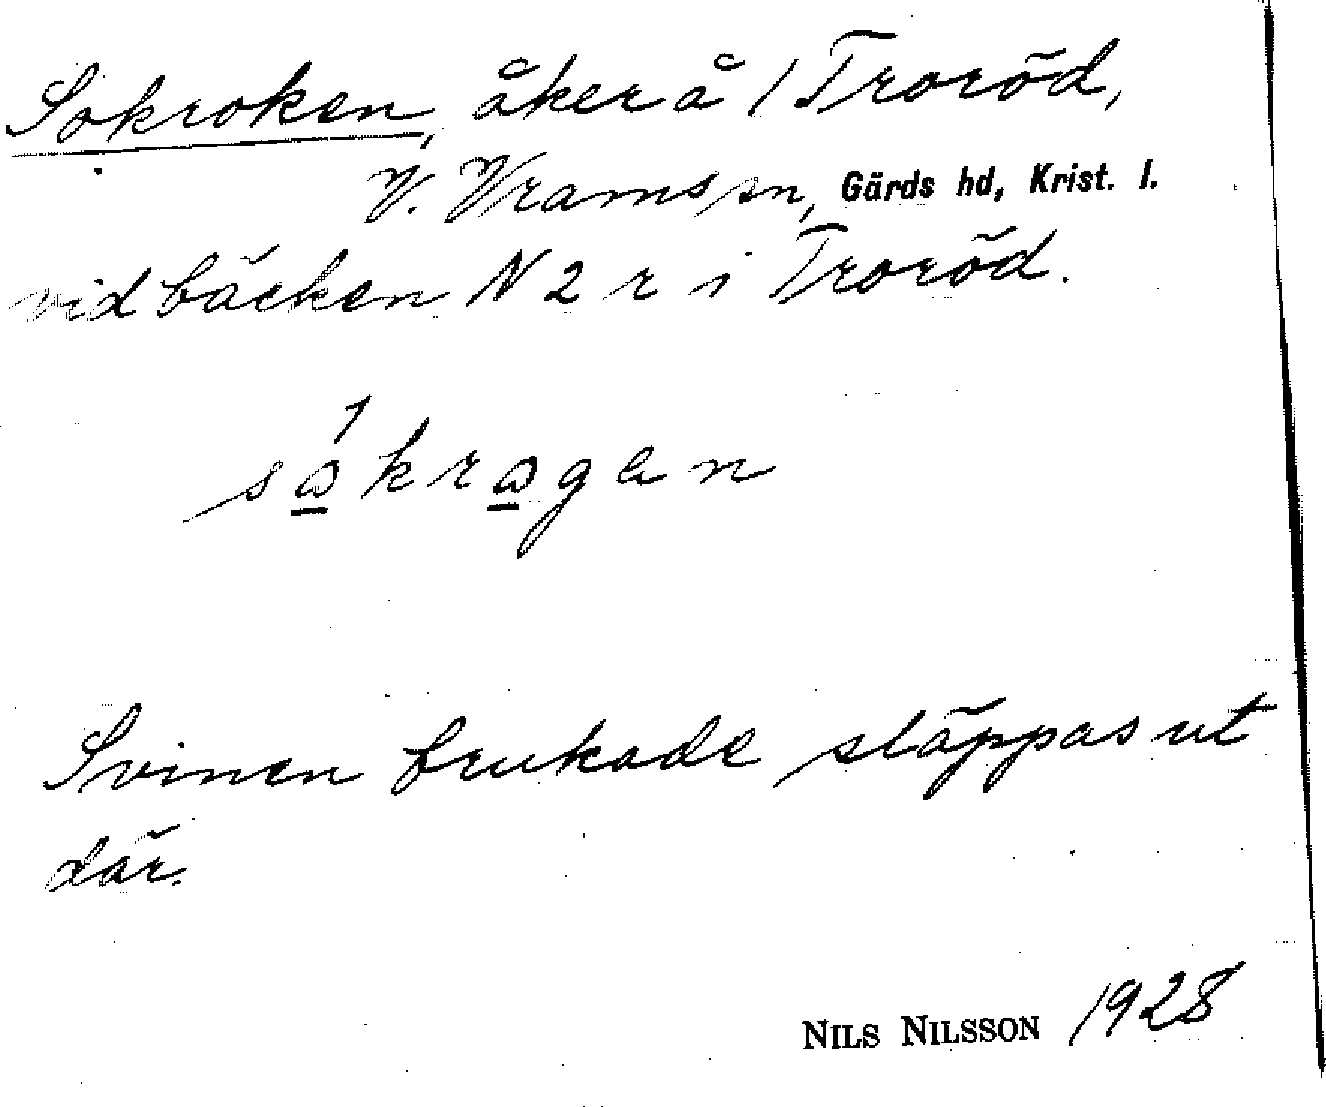 Sokroken, åker å 1 Troröd,
V. Vrams sn, Gärds hd, Krist. l.
vid bäcken N 2 r i Troröd.
såkrågen
Svinen brukade släppas ut
där.
NILS NILSSON 1928